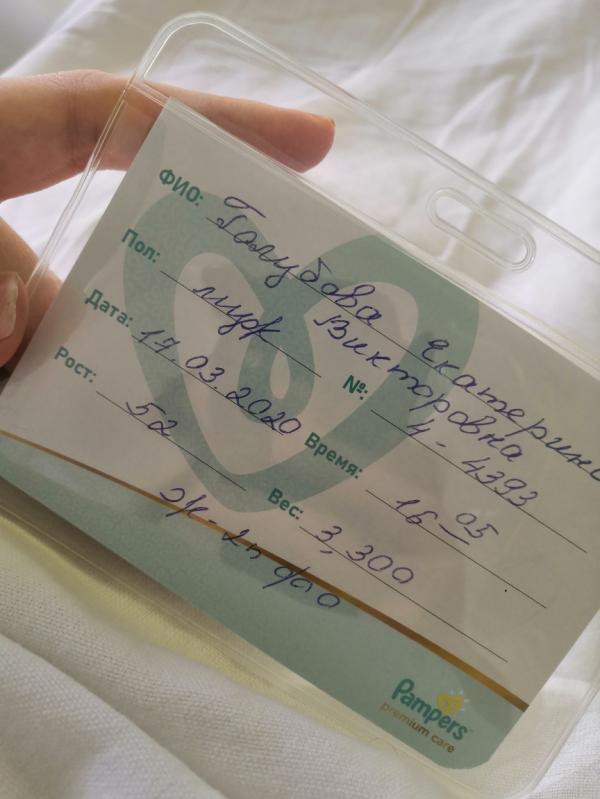 ФИО: Голубова Екатерина
Викторовна
Пол: муж №: 4-4393
Дата: 17.03.2020 Время: 16 05
Рост: 52 Вес: 3,300
Pampers
premium care